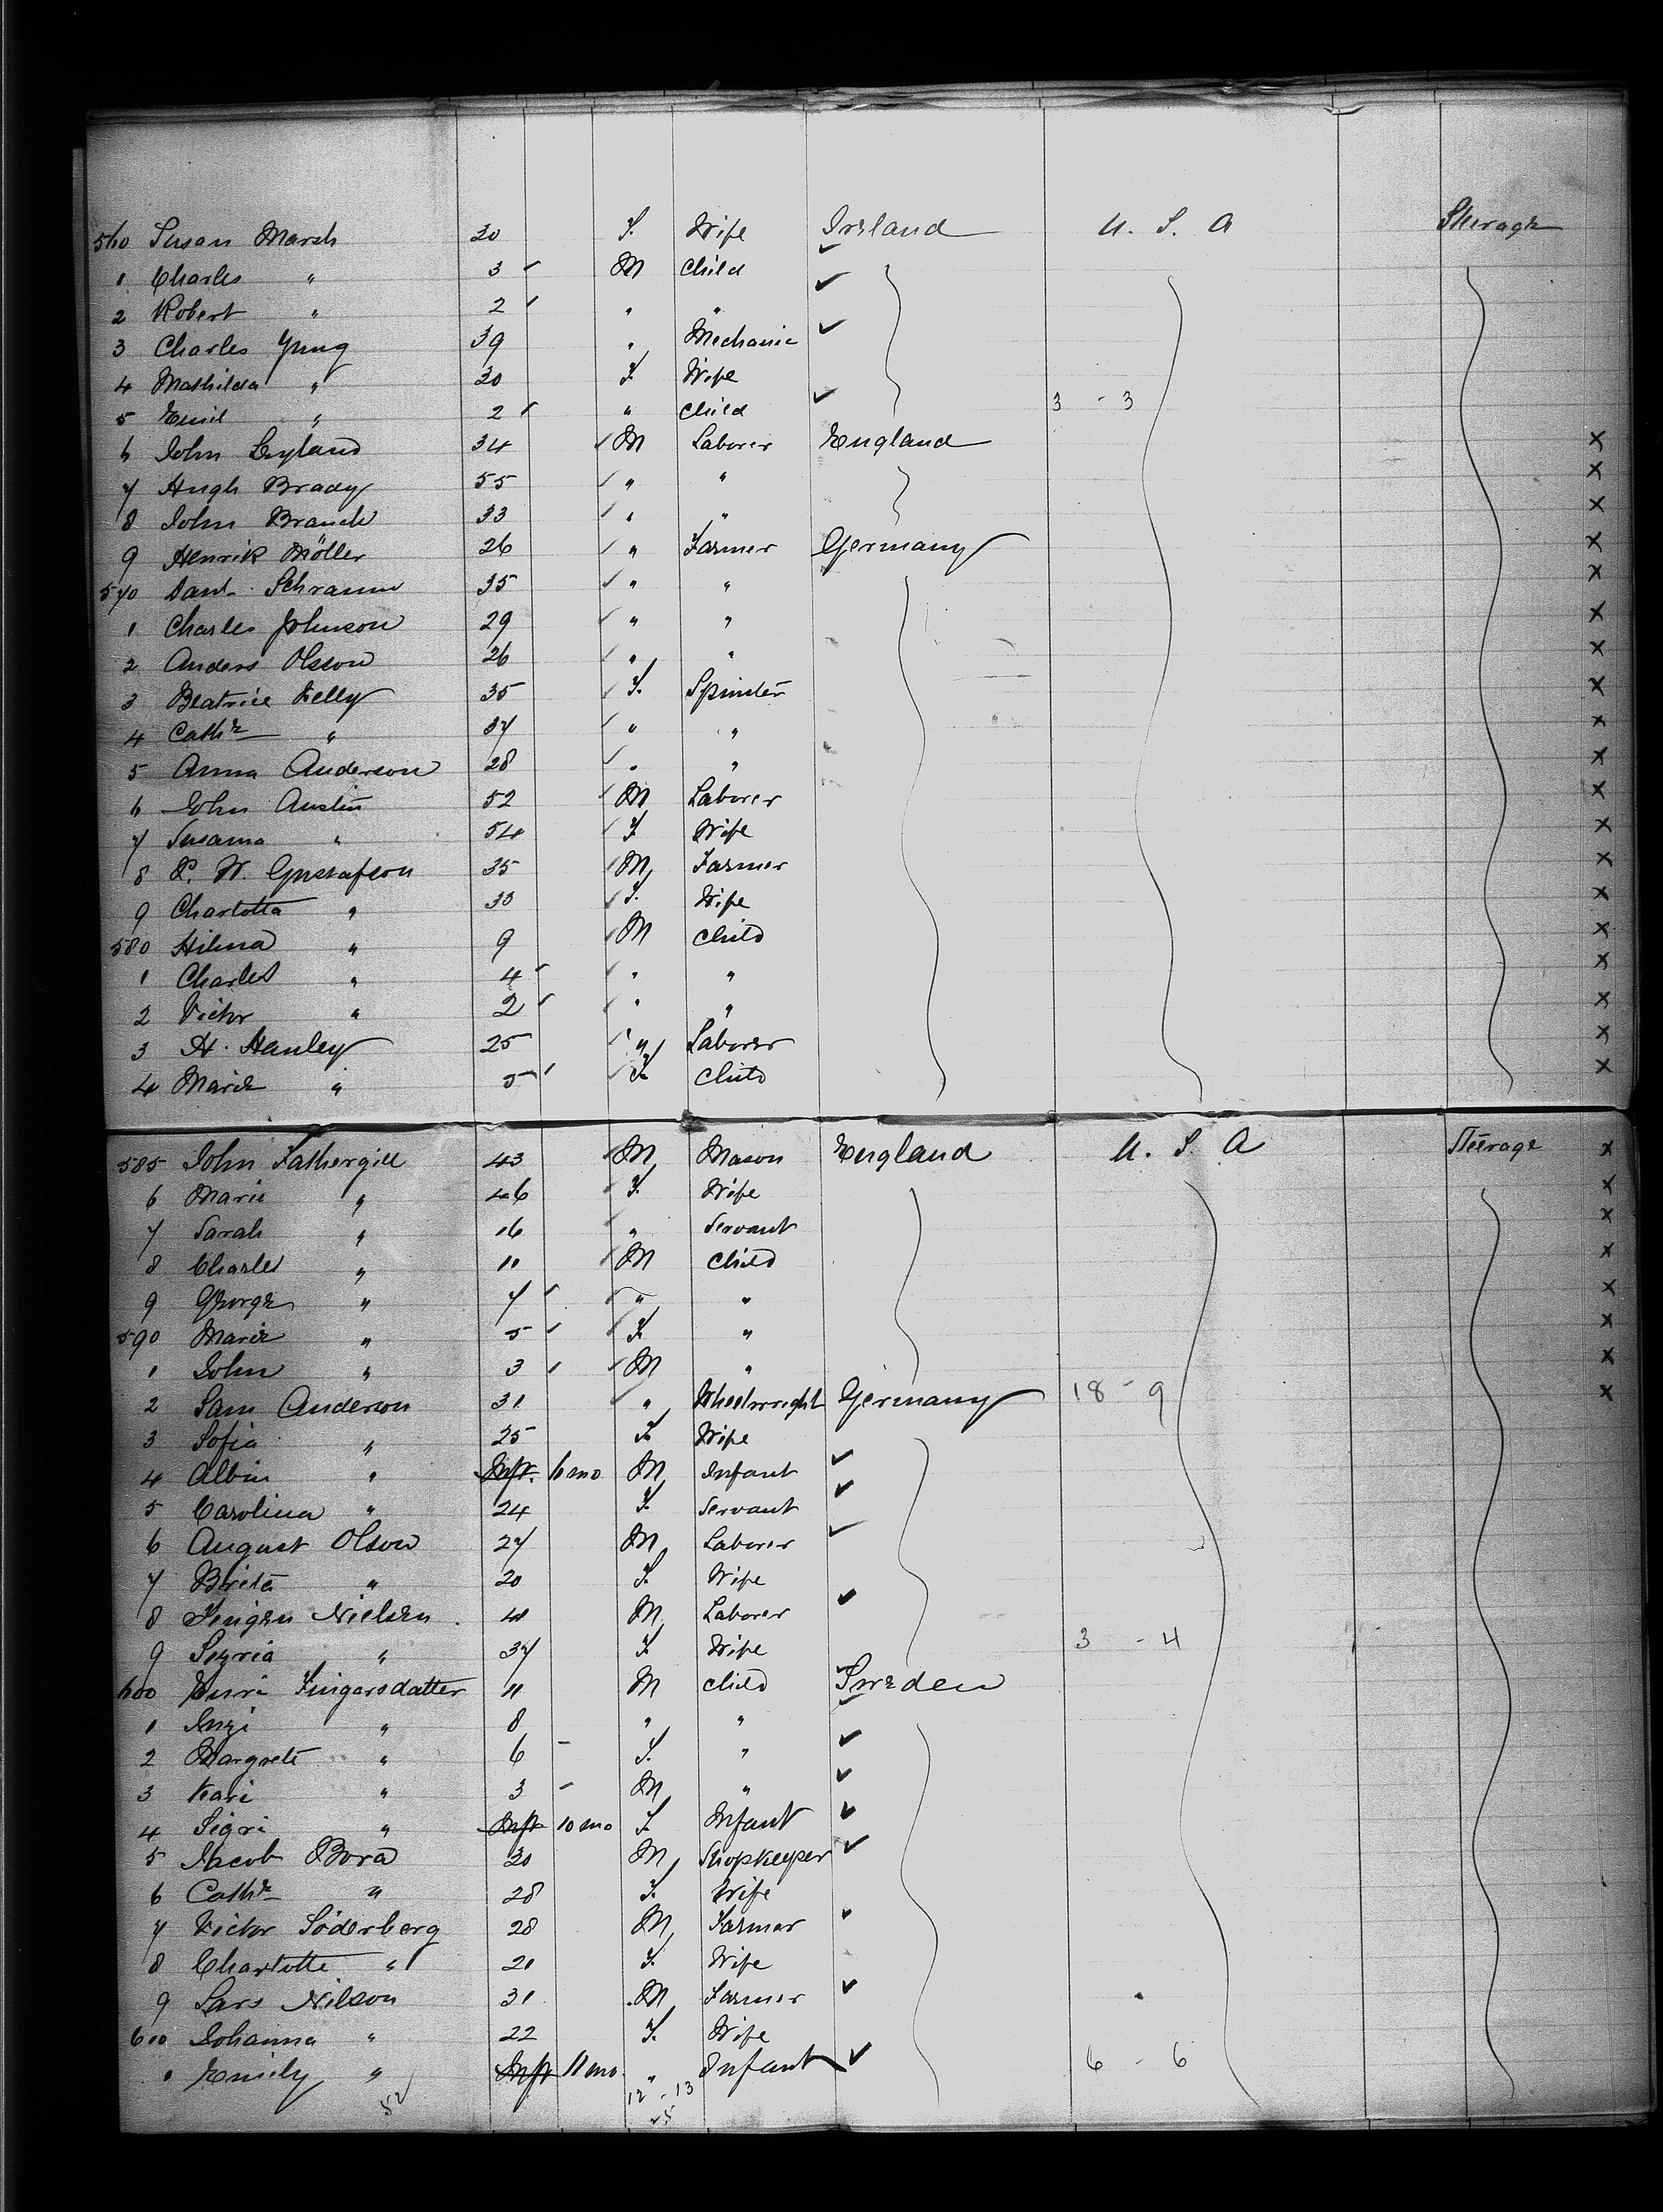 560 Susan Marsh 30 F. Wife Ireland U. S. A Steerage
1 Charles " 3 M Child
2 Robert " 2 " "
3 Charles Yung 39 " Mechanic
4 Mathilda " 30 F. Wife
5 Emil " 2 " Child 3 - 3
6 John Leyland 34 M Laborer England x
7 Hugh Brady 55 " " x
8 John Branch 33 " " x
9 Henrik Möller 26 " Farmer Germany x
570 Schramm 35 " " x
1 Charles Johnson 29 " " x
2 Anders Olsson 26 " " x
3 Beatrice Kelly 35 F. Spinster x
4 Cathe " 37 " " x
5 Anna Anderson 28 " " x
6 John Austin 52 M Laborer x
7 Susanna " 54 F Wife x
8 P. W. Gustafson 35 M Farmer x
9 Charlotta " 33 F. Wife x
580 Hilma " 9 M Child x
1 Charles " 4 " " x
2 Victor " 2 " " x
3 H. Hanley 25 " Laborer x
4 Marie " 5 F. Child x
585 John Fathergill 43 M Mason England U. S. A Steerage x
6 Marie " 46 F. Wife x
7 Sarah " 16 " Servant x
8 Charles " 11 M Child x
9 George " 7 " " x
590 Marie " 5 F. " x
1 John " 3 M " x
2 Sam Anderson 31 " Wheelwright Germany 18 - 9 x
3 Sofia " 25 F. Wife
4 Albin " Inft. 6 mo M Infant
5 Carolina " 24 F. Servant
6 August Olson 27 M Laborer
7 Brita " 20 F. Wife
8 Nielsen M Laborer
9 " 37 F Wife 3 - 4
600 Fingarsdatter 11 M Child Sweden
1 " 8 " "
2 Margrete " 6 F. "
3 Kari " 3 M "
4 Sigri " Inft 10 mo F. Infant
5 Jacob Bora 30 M Shopkeeper
6 Cathe " 28 F. Wife
7 Victor Söderberg 28 M Farmer
8 Charlotte " 21 F. Wife
9 Lars Nilson 31 M Farmer
610 Johanna " 22 F. Wife
1 Emily " Inft 11 mo " Infant 6 - 6
52 12 - 13
25